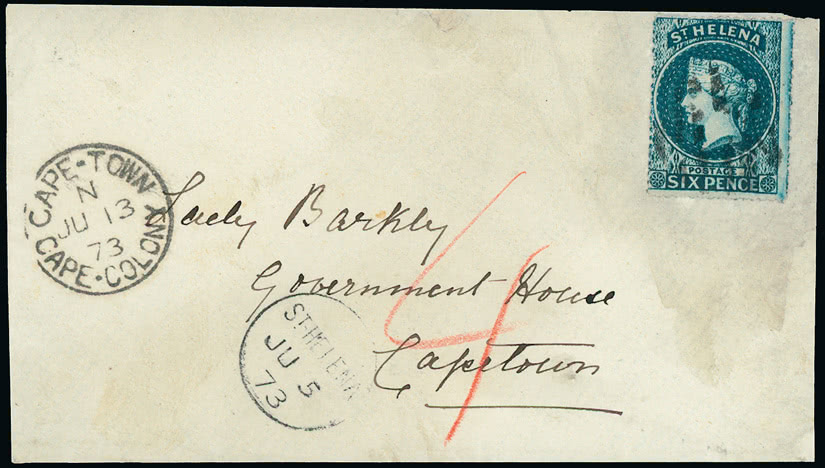 ST HELENA
POSTAGE
SIX PENCE
CAPE-TOWN
N
JU 13
73
CAPE-COLONY
Lady Barkly
Government House
Capetown
ST HELENA
JU 5
73
4